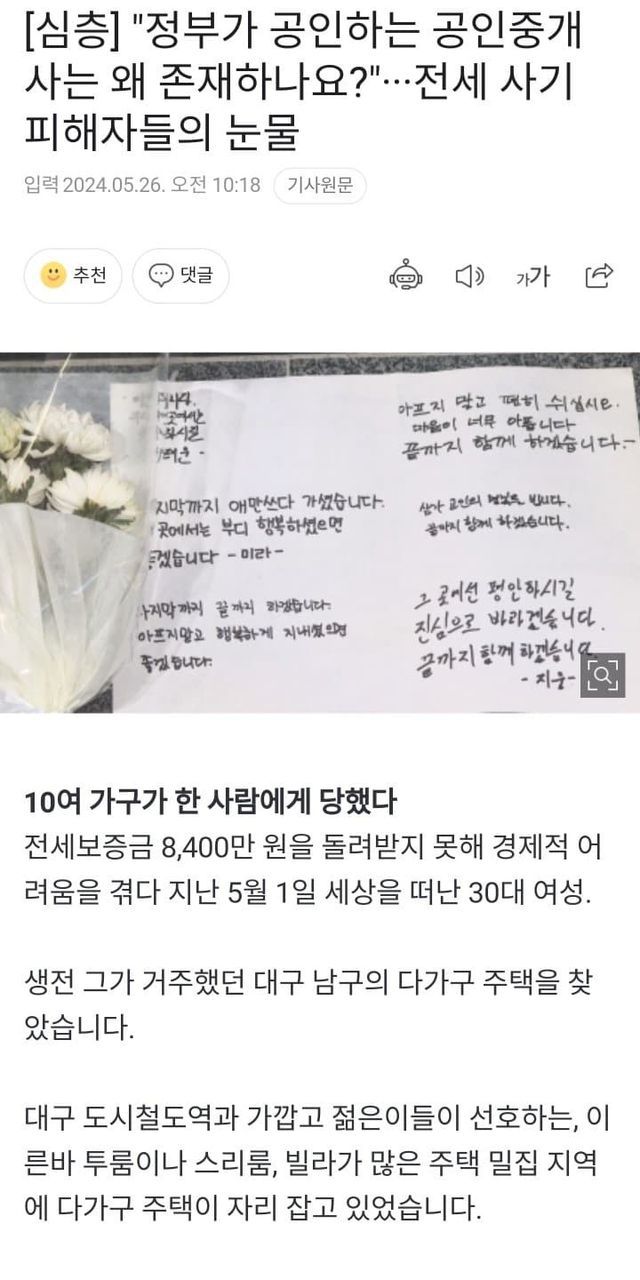 [심층] "정부가 공인하는 공인중개
사는 왜 존재하나요?"…전세 사기
피해자들의 눈물
입력 2024.05.26. 오전 10:18 기사원문
추천 댓글 가가
아프지 말고 편히 쉬십시요.
마음이 너무 아픕니다
끝까지 함께 하겠습니다-
지막까지 애만쓰다 가셨습니다.
곳에서는 부디 행복하셨으면
겠습니다 -미라-
삼가 고인의 명복을 빕니다.
끝까지 함께 하겠습니다.
마지막까지 끝까지 하겠습니다.
아프지말고 행복하게 지내셨으면
좋겠습니다.
그 곳에선 평안하시길
진심으로 바라겠습니다.
끝까지 함께 하겠습니다
-지운-
10여 가구가 한 사람에게 당했다
전세보증금 8,400만 원을 돌려받지 못해 경제적 어
려움을 겪다 지난 5월 1일 세상을 떠난 30대 여성.
생전 그가 거주했던 대구 남구의 다가구 주택을 찾
았습니다.
대구 도시철도역과 가깝고 젊은이들이 선호하는, 이
른바 투룸이나 스리룸, 빌라가 많은 주택 밀집 지역
에 다가구 주택이 자리 잡고 있었습니다.